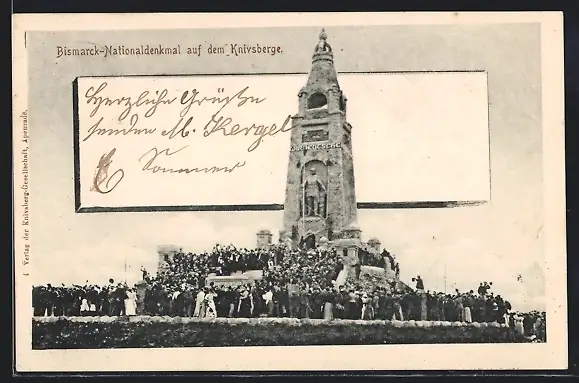 Bismarck-Nationaldenkmal auf dem Knivsberge.
Herzliche Grüße
senden M. Kergel
Sommer
4 Verlag der Knivsberg-Gesellschaft, Apenrade.